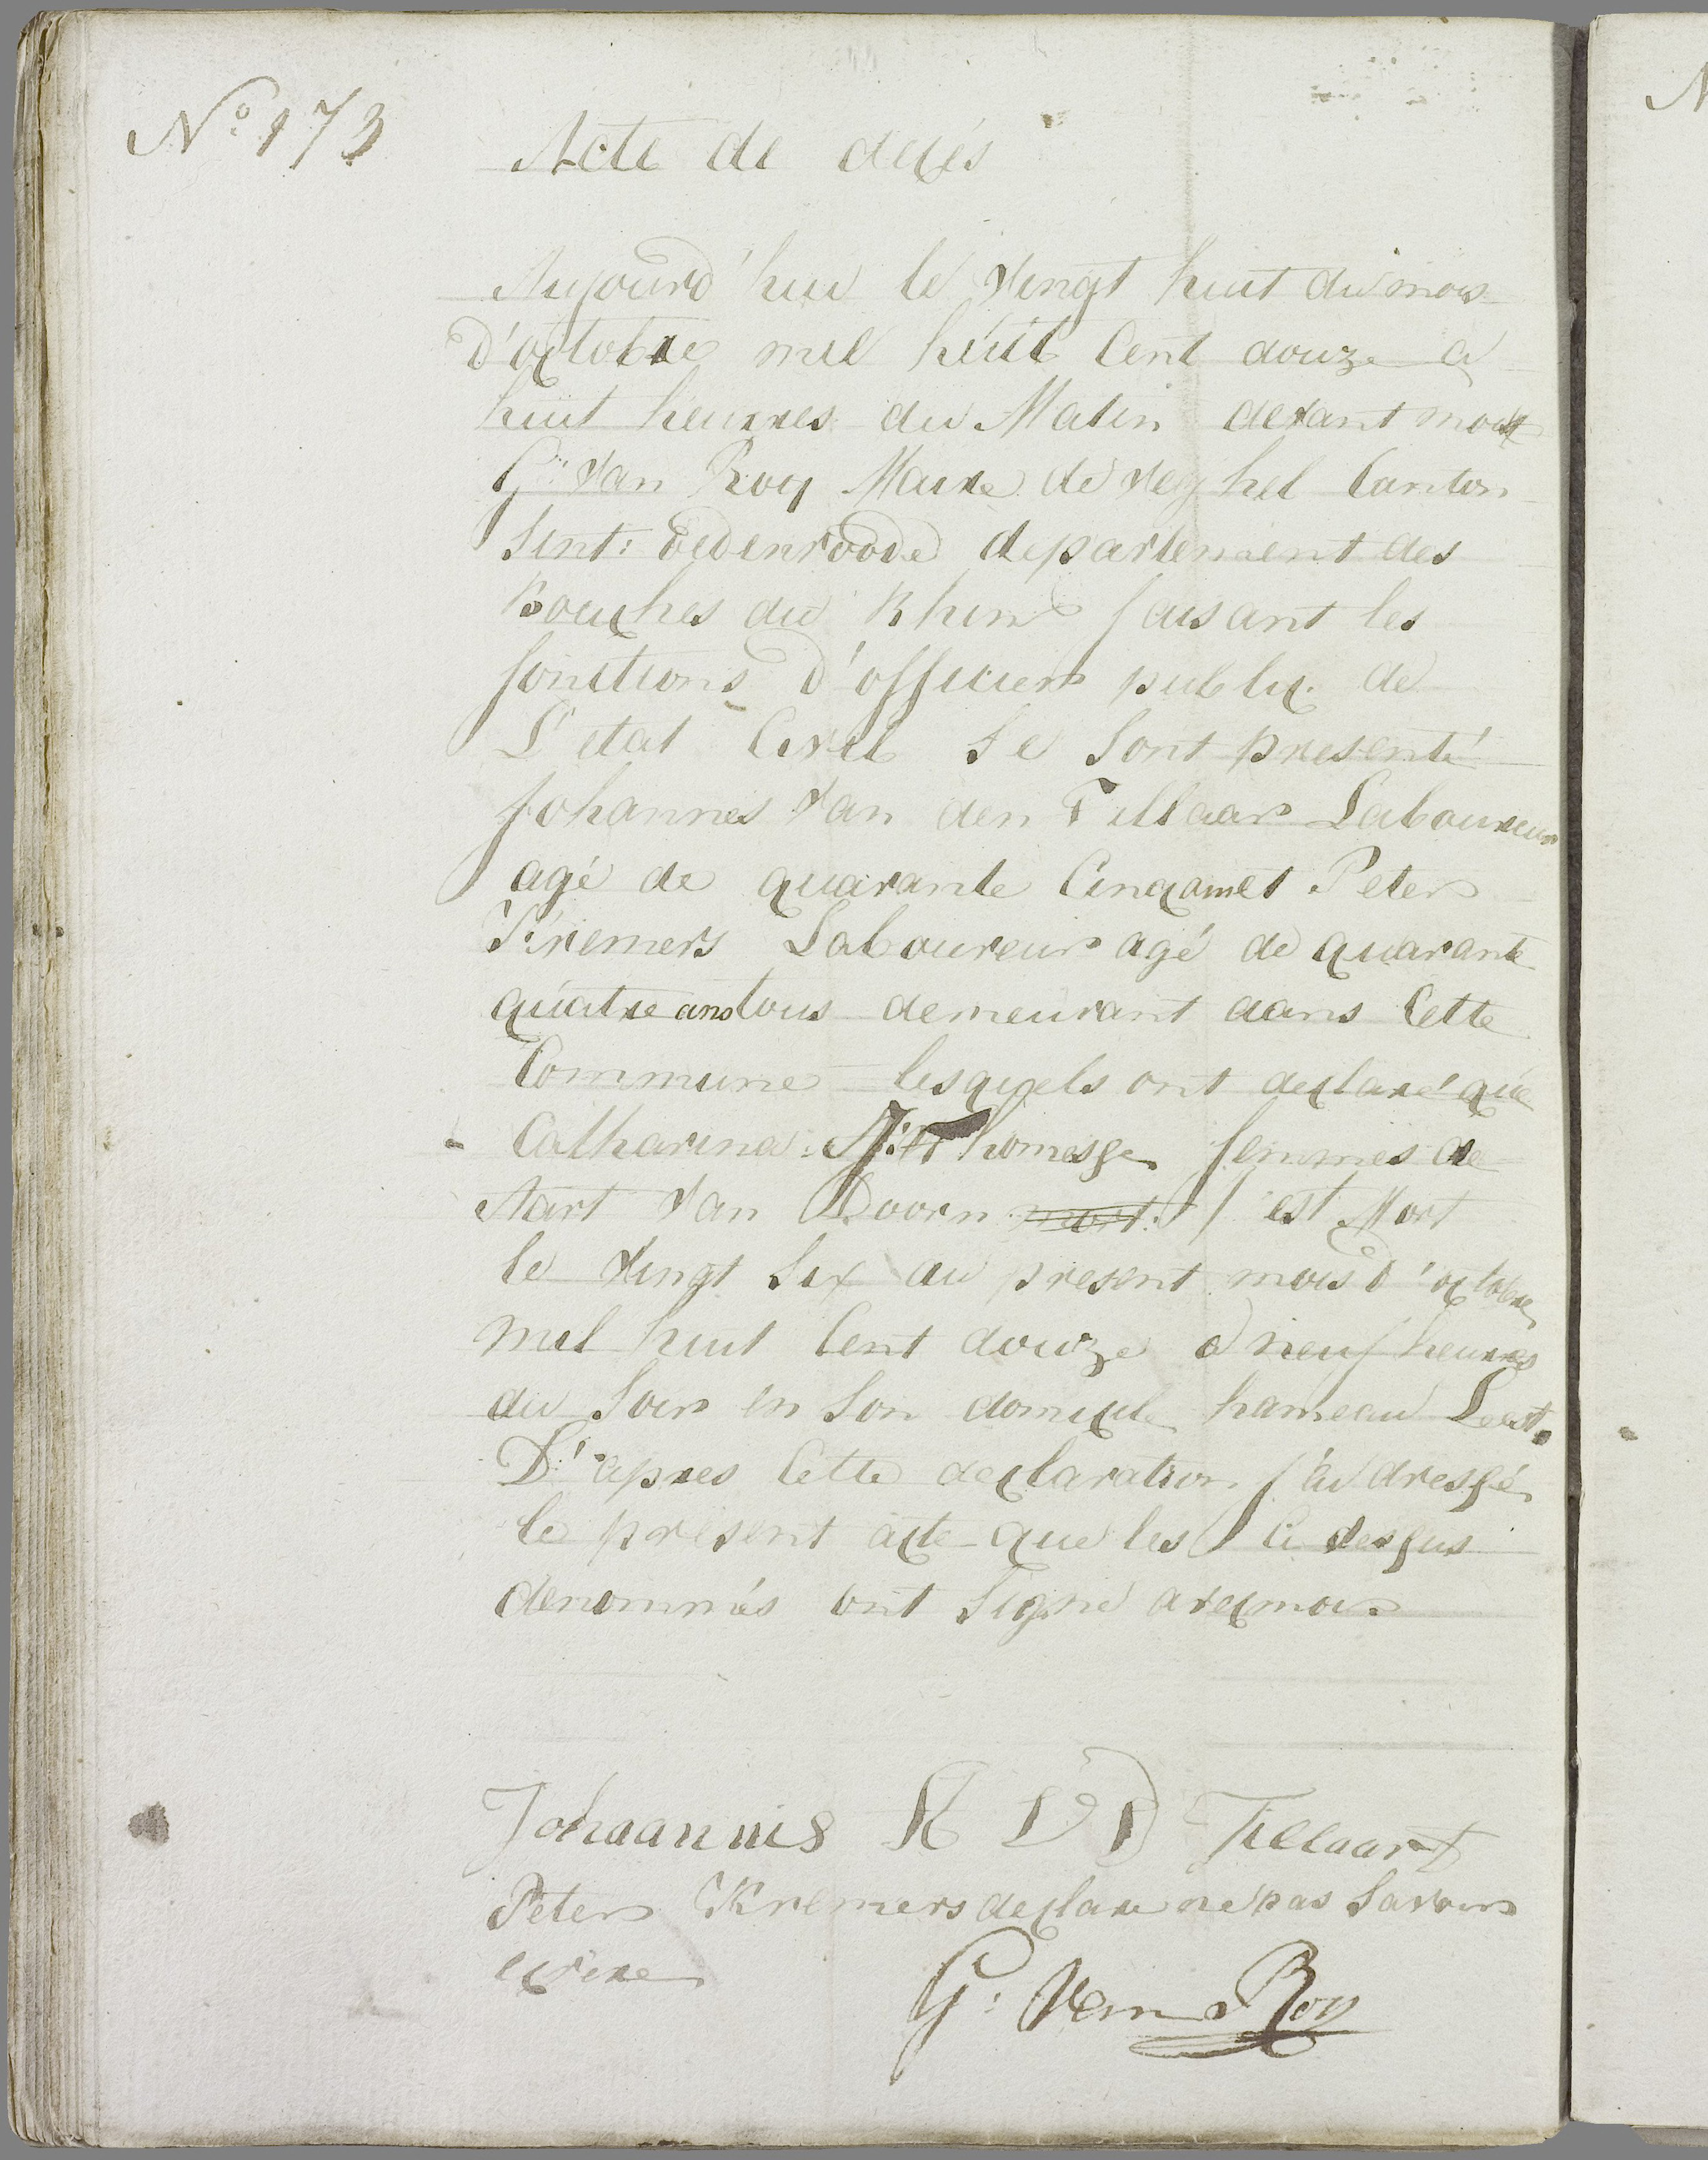 N° 173
Acte de decés
Aujourd'hui le vingt huit du mois
d'octobre mil huit Cent douze a
huit heurres du Matin devant moi
G: van Roy Maire de Veghel Canton
Sint: oedenroode departement des
Bouches du Rhin faisant les
fonctions d'officier public de
L'etat Civil se sont presenté
Johannes van den Tillaar Laboureur
agé de quarante Cinq ans et Peter
Kremers Laboureur agé de quarante
quatre ans tous demeurant dans Cette
Commune lesquels ont declaré que
Catharina: femmes de
Aart van Doorn mort: est Mort
le vingt Six du present mois d'octobre
mil huit Cent douze a neuf heurres
du Soir en Son domicile hameau Leest.
D'apres Cette declaration j'ai dressé
le present acte que les Ci dessus
denommés ont Signé avec moi
Johaannis V D Tillaart
Peter Kremers declare ne pas Savoir
ecrire
G: Van Roy